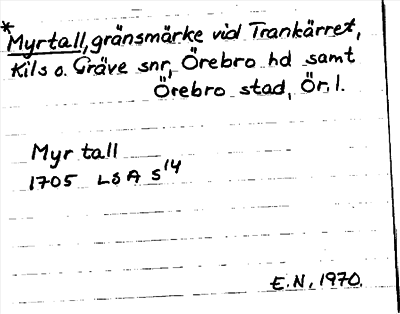 *Myrtall, gränsmärke vid Trankärret,
Kils o. Gräve snr, Örebro hd samt
Örebro stad, Ör. l.
Myr tall
1705 LSA S 14
E.N. 1970.